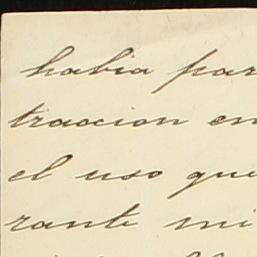 habia par
traccion en
el uso que
rante mi